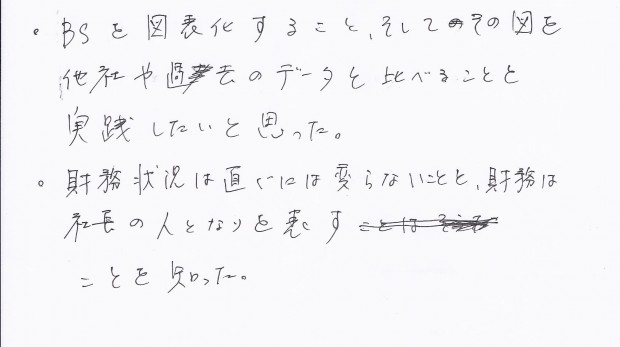 ・BSを図表化すること、そしてその図を
他社や過去のデータと比べることと
実践したいと思った。
・財務状況は直ぐには変らないことと、財務は
社長の人となりを表す
ことを知った。